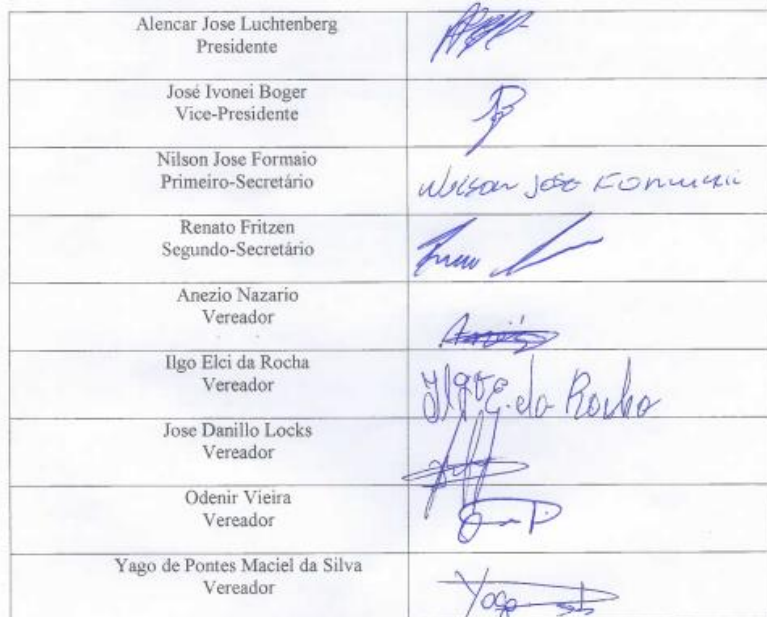 Alencar Jose Luchtenberg
Presidente
José Ivonei Boger
Vice-Presidente
Nilson Jose Formaio
Primeiro-Secretário
Nilson Jose Formaio
Renato Fritzen
Segundo-Secretário
Anezio Nazario
Vereador
Ilgo Elci da Rocha
Vereador
Ilgo E. da Rocha
Jose Danillo Locks
Vereador
Odenir Vieira
Vereador
Yago de Pontes Maciel da Silva
Vereador
Yago